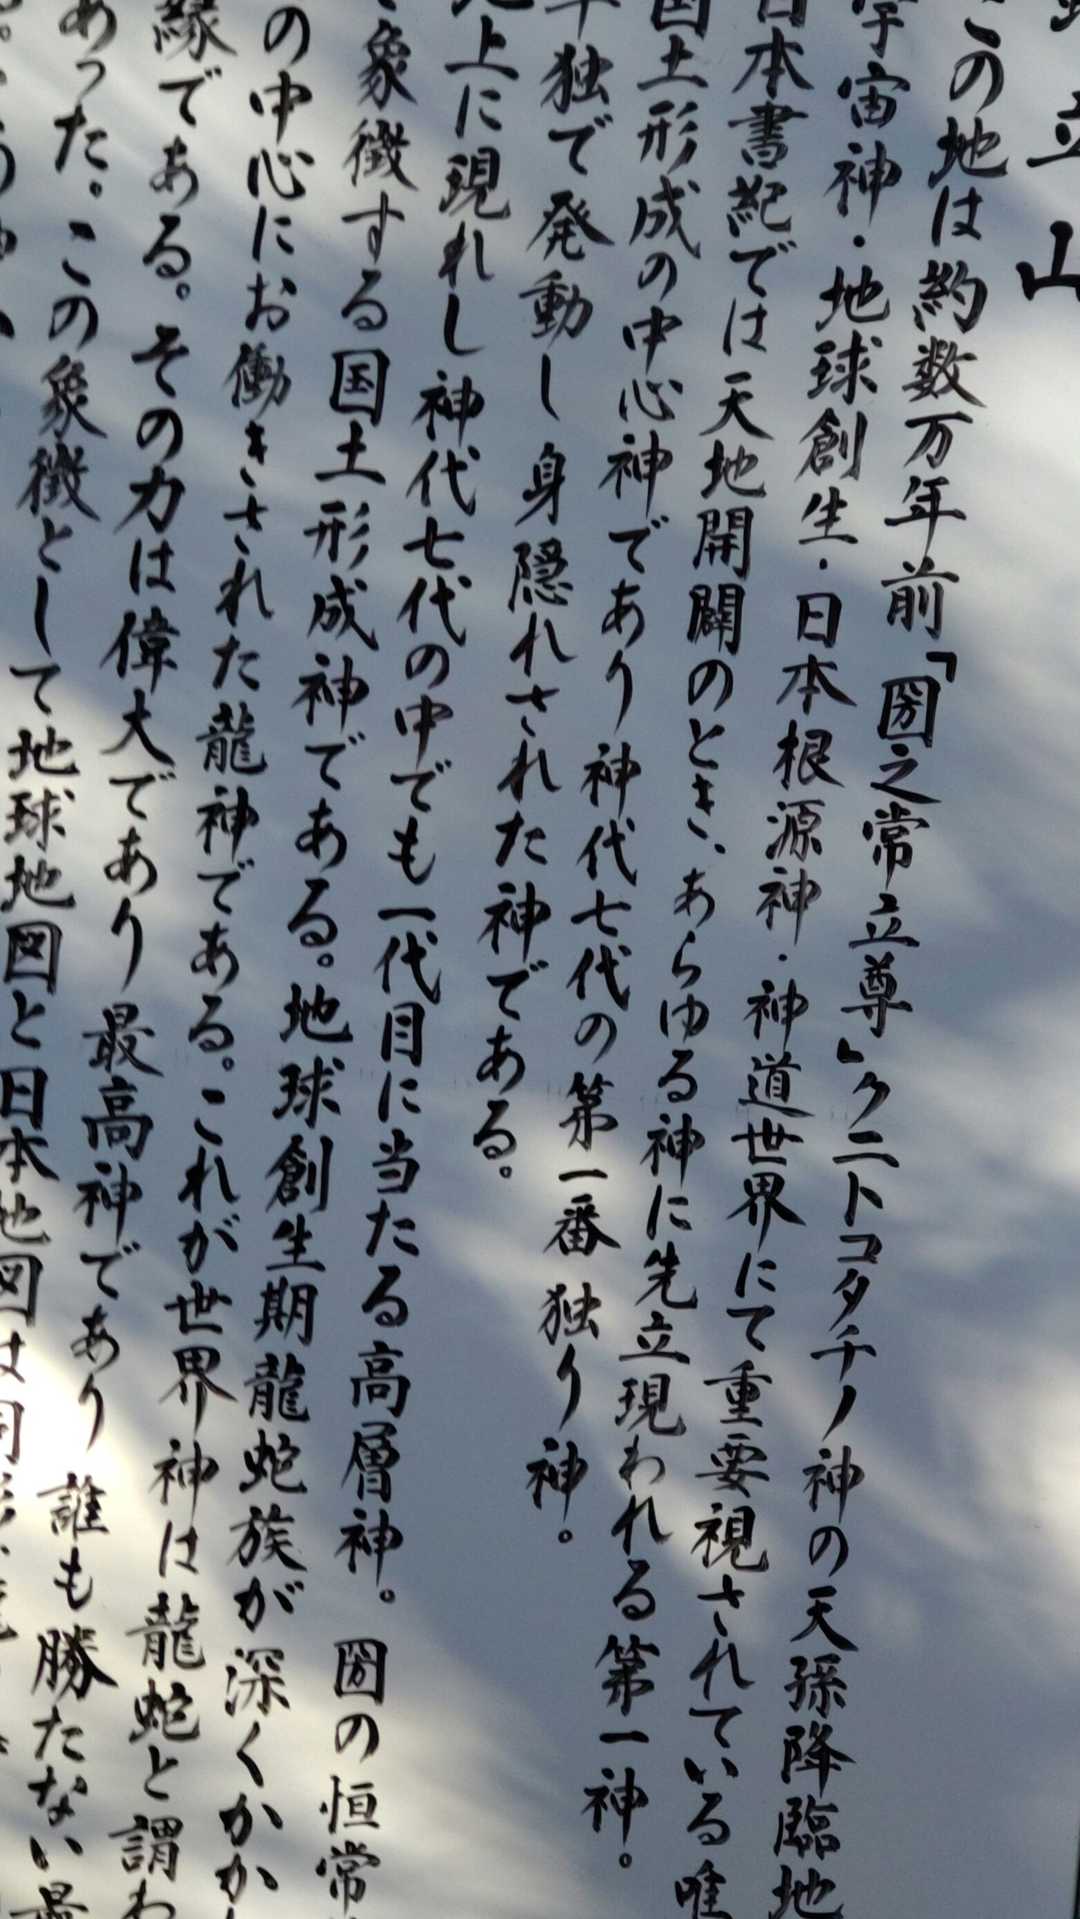 立山
この地は約数万年前「圀之常立尊」クニトコタチノ神の天孫降臨地
宇宙神・地球創生・日本根源神・神道世界にて重要視されている唯
日本書紀では天地開闢のとき、あらゆる神に先立現われる第一神。
国土形成の中心神であり神代七代の第一番独り神。
単独で発動し身隠れされた神である。
地上に現れし神代七代の中でも一代目に当たる高層神。圀の恒常
象徴する国土形成神である。地球創生期龍蛇族が深くかか
の中心にお働きされた龍神である。これが世界神は龍蛇と謂わ
縁である。その力は偉大であり最高神であり誰も勝たない最
あった。この象徴として地球地図と日本地図は同形